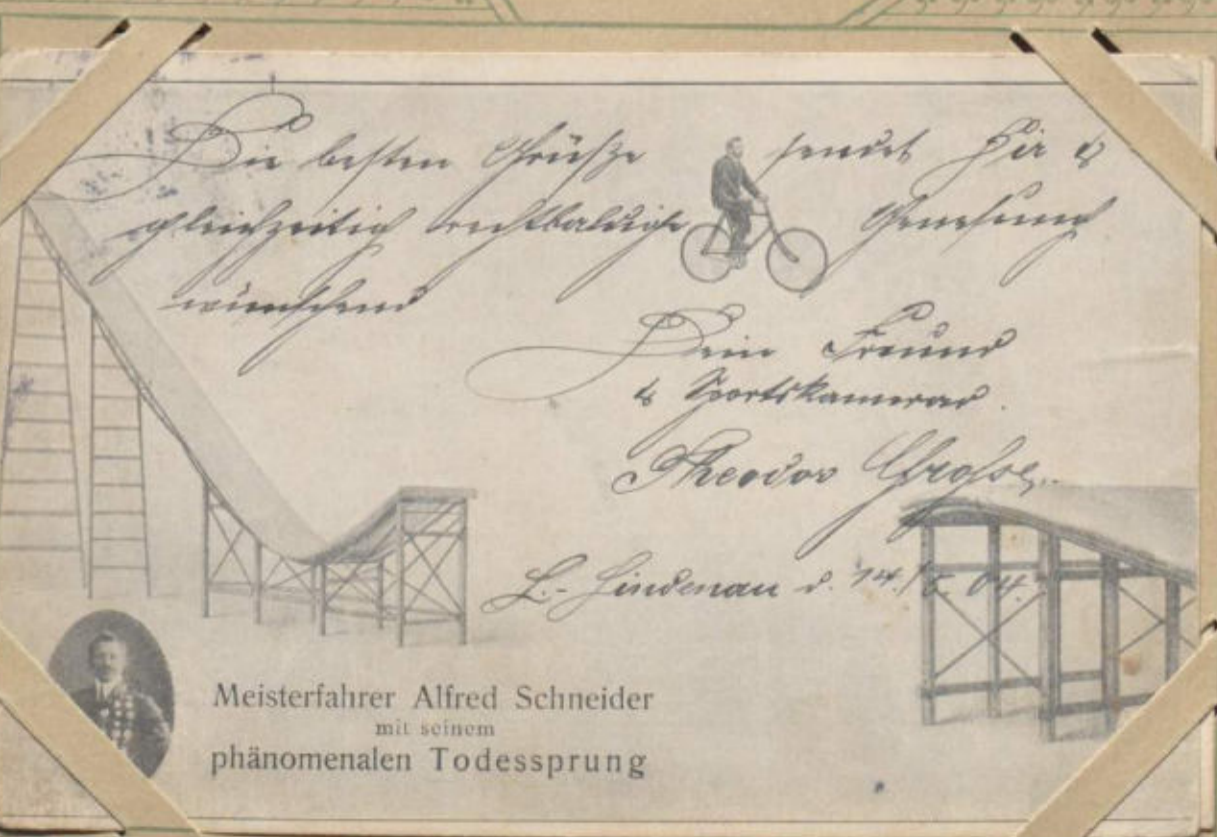 Die besten Grüße sendet Dir &
gleichzeitig recht baldige Genesung
wünschend
Dein Freund
& Sportskamerad.
Theodor Grosse.
L.-Lindenau d. 14./5. 04.
Meisterfahrer Alfred Schneider
mit seinem
phänomenalen Todessprung